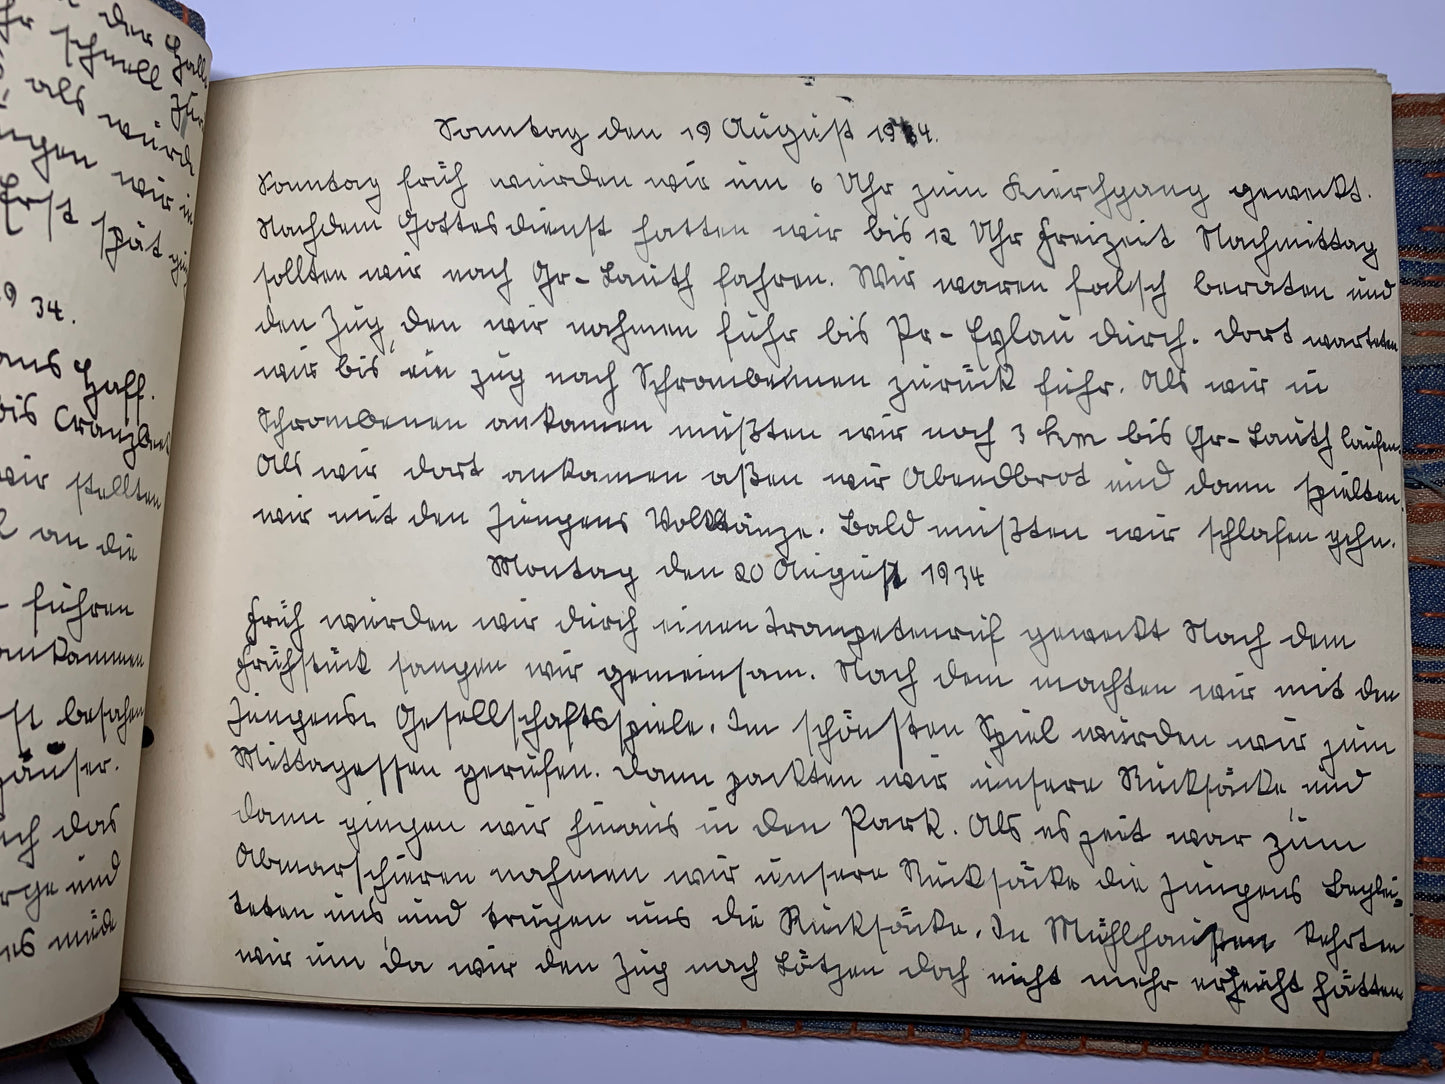 der Haff
schnell zur
als würd
ngen wir in
Erst spät gin
19 34.
ans Haff.
bis Cranzbeek
wir stellten
an die
führen
ankammen
st besahen
häuser.
ich das
rge und
es müde
Sonntag den 19 August 1934.
Sonntag früh wurden wir um 6 Uhr zum Kierchgang geweckt.
Nachdem Gottesdienst hatten wir bis 12 Uhr Freizeit Nachmittag
sollten wir nach Gr-Lauth fahren. Wir waren falsch beraten und
den Zug, den wir nahmen fuhr bis Pr-Eylau durch. Dort warteten
wir bis ein Zug nach Schrombehnen zurück fuhr. Als wir in
Schrombenen ankamen mußten wir noch 3 km bis Gr-Lauth laufen.
Als wir dort ankamen aßen wir Abendbrot und dann spielten
wir mit den Jungens Volktänze. Bald mußten wir schlafen gehn.
Montag den 20 August 1934
Früh wurden wir durch einen Trompetenruf geweckt Nach dem
Frühstück sangen wir gemeinsam. Nach dem machten wir mit den
Jungens Gesellschaftsspiele. Im schönsten Spiel wurden wir zum
Mittagessen gerufen. Dann packten wir unsere Rucksäcke und
dann gingen wir hinaus in den Park. Als es zeit war zum
Abmarschieren nahmen wir unsere Rucksäcke die Jungens beglei-
teten uns und trugen uns die Rucksäcke. In Mühlhausen kehrten
wir um da wir den Zug nach Lötzen doch nicht mehr erreicht hätten.